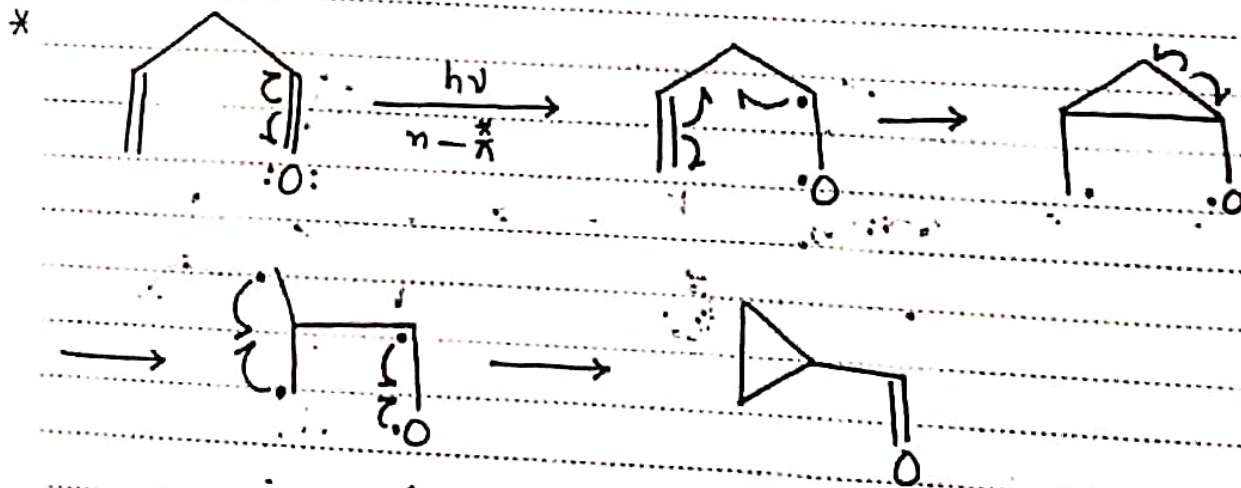 *
hν
n-π*
:O:
·O
·O
·O
O